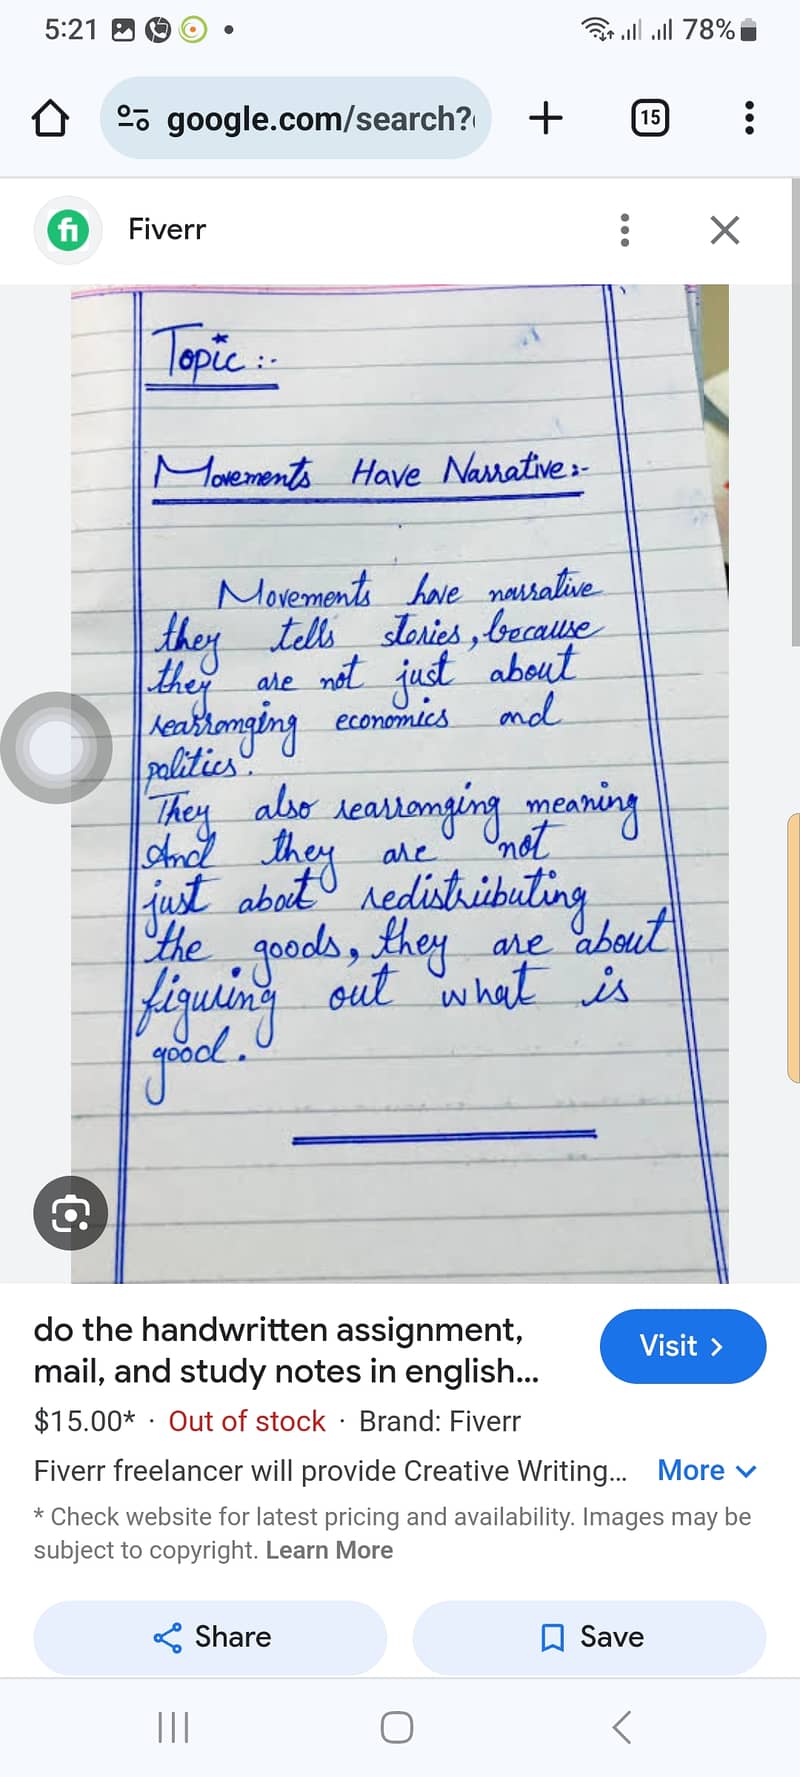 5:21
78%
google.com/search?
15
Fiverr
Topic :-
Movements Have Narrative :-
Movements have narrative
they tells stories, because
they are not just about
rearranging economics and
politics.
They also rearranging meaning
And they are not
just about redistributing
the goods, they are about
figuring out what is
good.
do the handwritten assignment,
mail, and study notes in english...
Visit >
$15.00* · Out of stock · Brand: Fiverr
Fiverr freelancer will provide Creative Writing... More
* Check website for latest pricing and availability. Images may be
subject to copyright. Learn More
Share
Save